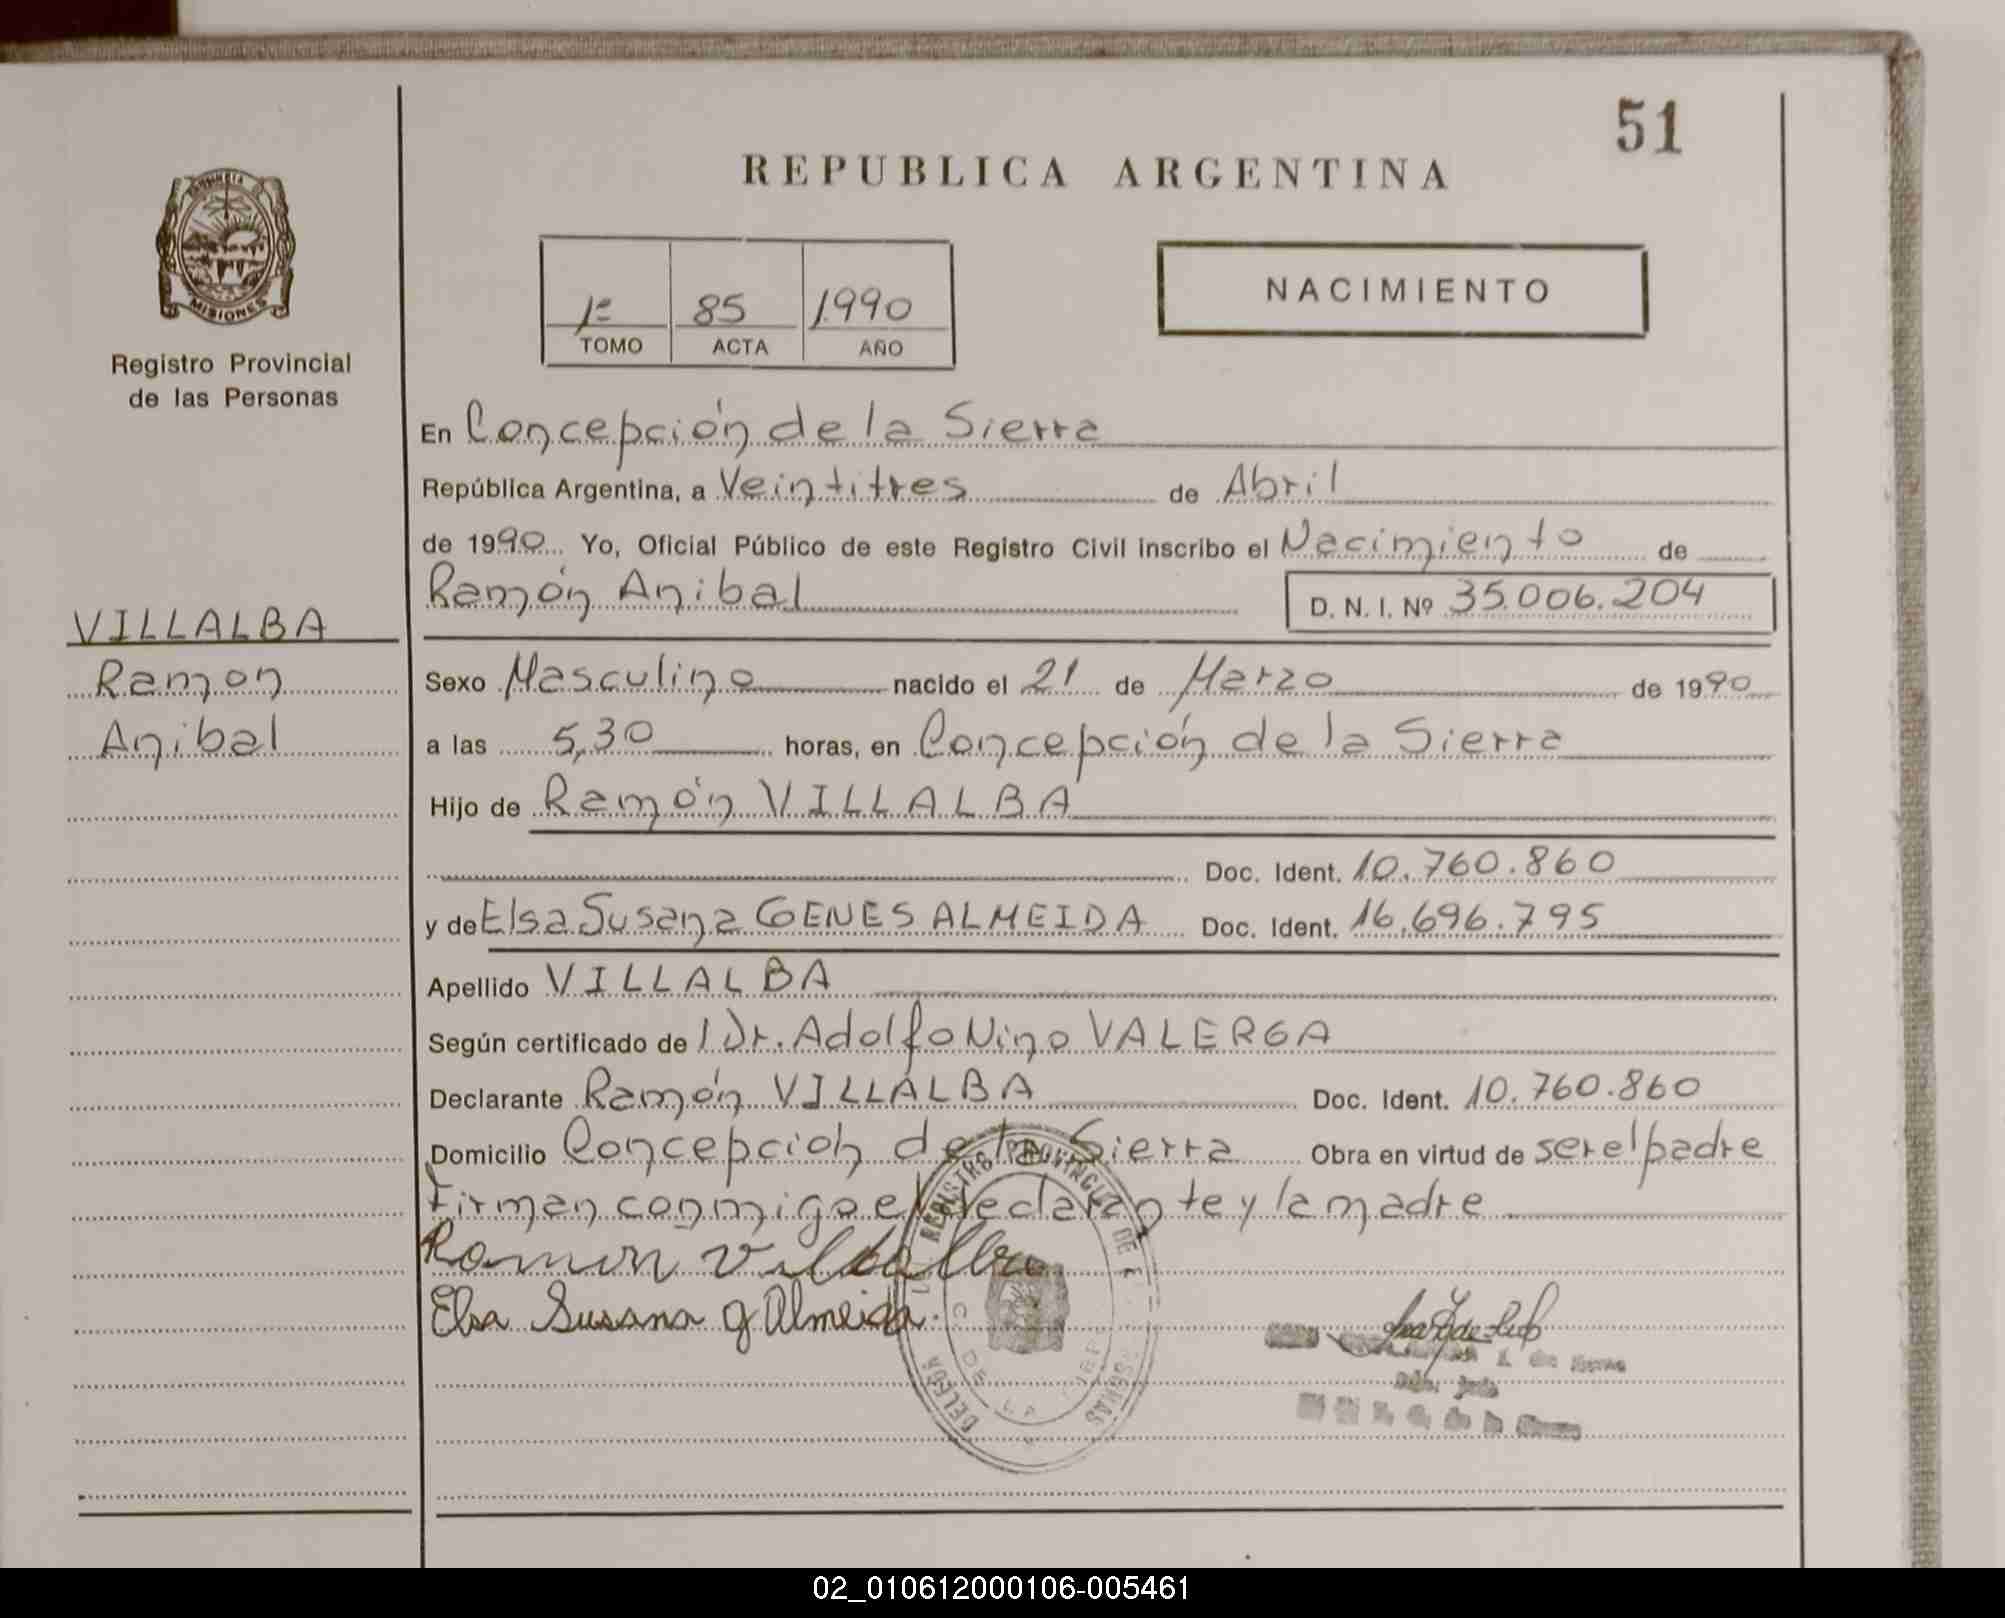 51
REPUBLICA ARGENTINA
PROVINCIA
MISIONES
Registro Provincial
de las Personas
1º 85 1990
TOMO ACTA AÑO
NACIMIENTO
En Concepción de la Sierra
República Argentina, a Veintitres de Abril
de 1990 Yo, Oficial Público de este Registro Civil inscribo el Nacimiento de
Ramón Anibal D. N. I. Nº 35.006.204
VILLALBA
Ramon
Anibal
Sexo Masculino nacido el 21 de Marzo de 1990
a las 5,30 horas, en Concepción de la Sierra
Hijo de Ramón VILLALBA
Doc. Ident. 10.760.860
y de Elsa Susana GENES ALMEIDA Doc. Ident. 16.696.795
Apellido VILLALBA
Según certificado de l Dr. Adolfo Nino VALERGA
Declarante Ramón VILLALBA Doc. Ident. 10.760.860
Domicilio Concepcion de la Sierra Obra en virtud de ser el padre
Firman conmigo el declarante y la madre
Ramon Villalba
Elsa Susana g Almeida.
REGISTRO PROVINCIAL DE
DE LA
02_010612000106-005461